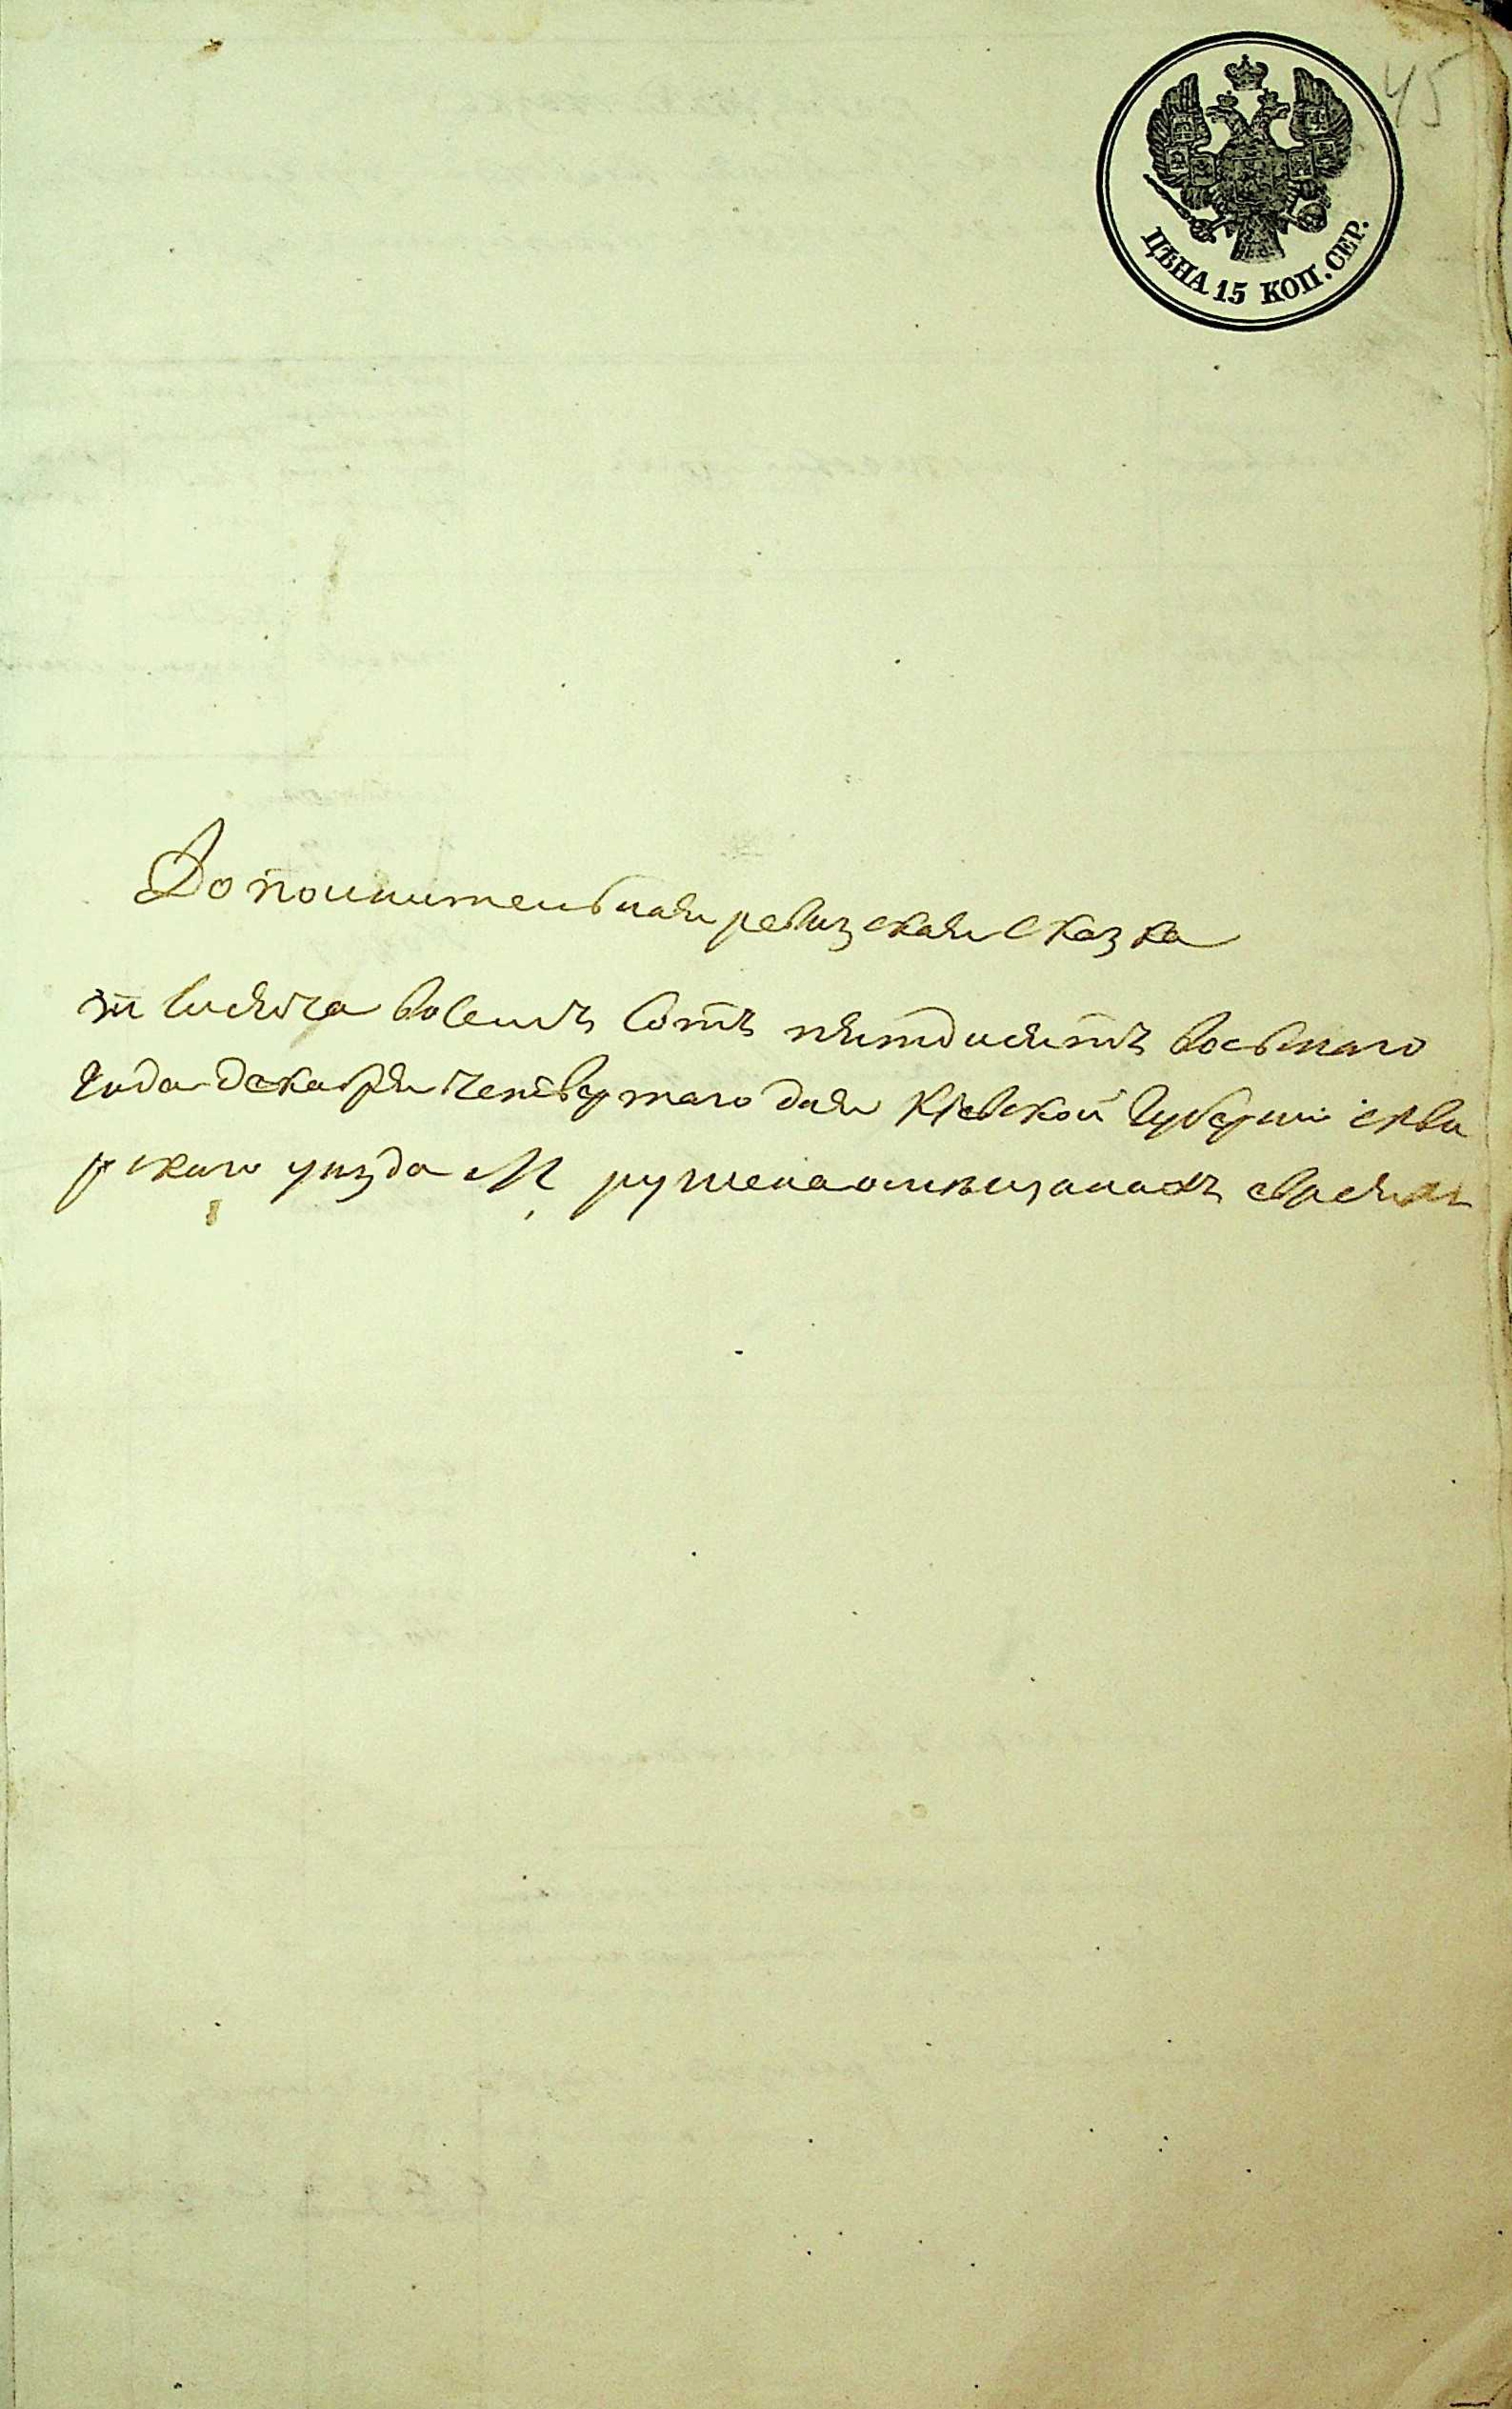 45
ЦѢНА 15 КОП. СЕР.
Дополнительная ревизская сказка
тысяча восемь сотъ пятдисятъ восьмаго
Года декабря четвертаго дня Кіевской Губерніи сква
рскаго уизда М. ружена омѣщанахъ евреяхъ